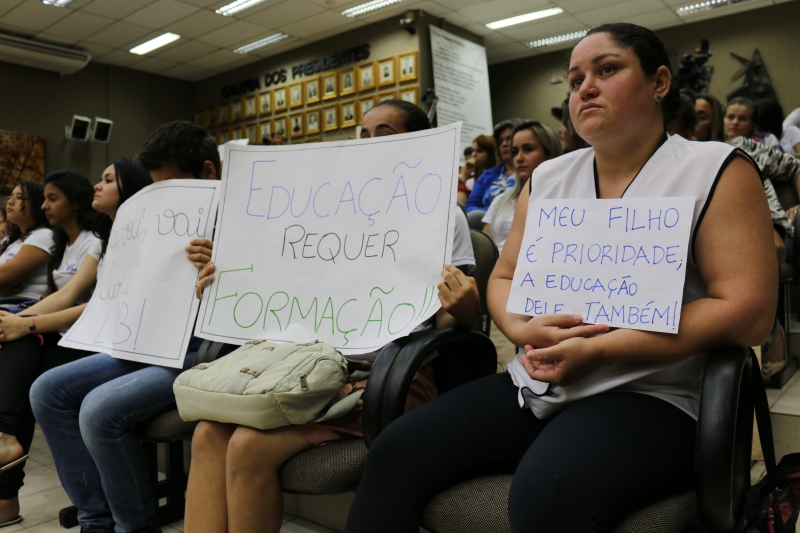 GALERIA DOS PRESIDENTES
você, vai
/3!
EDUCAÇÃO
REQUER
FORMAÇÃO!!
MEU FILHO
É PRIORIDADE,
A EDUCAÇÃO
DELE TAMBÉM!